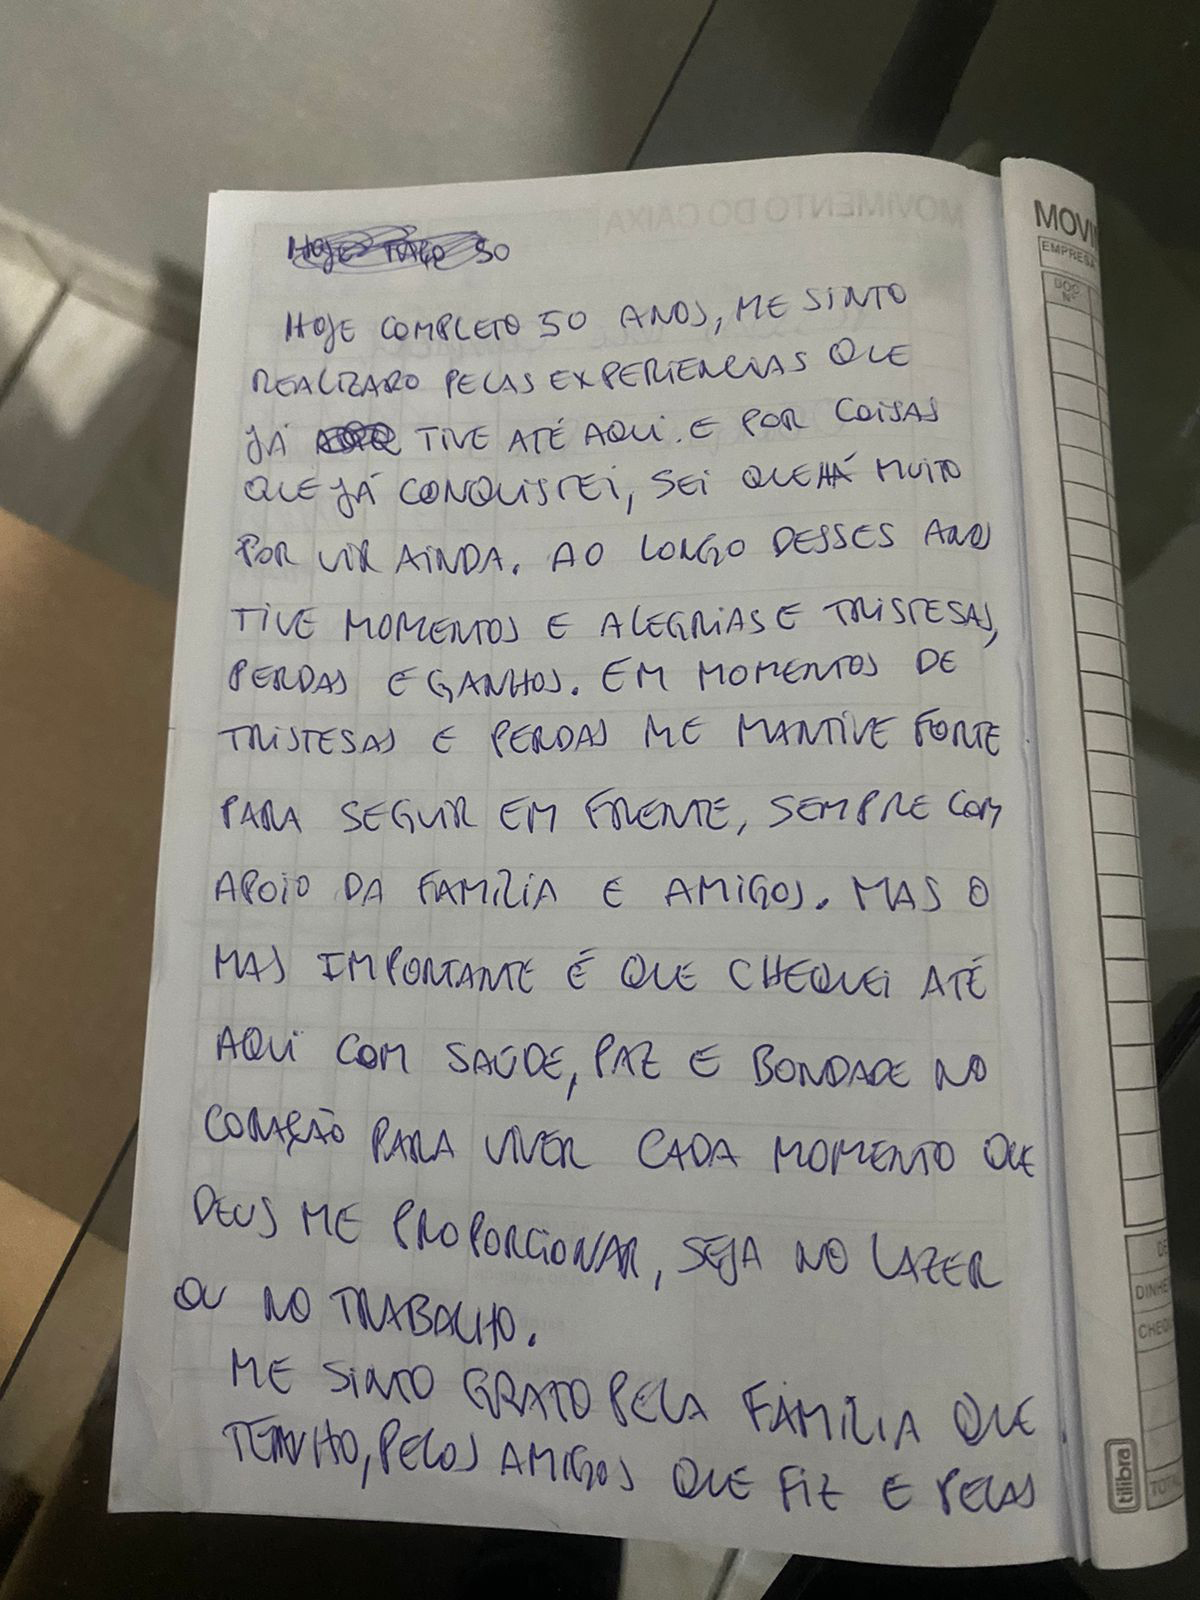 HOJE FAÇO 50
HOJE COMPLETO 50 ANOS, ME SINTO
REALIZADO PELAS EXPERIENCIAS QUE
JÁ TIVE ATÉ AQUI. E POR COISAS
QUE JÁ CONQUISTEI, SEI QUE HÁ MUITO
POR VIR AINDA. AO LONGO DESSES ANOS
TIVE MOMENTOS E ALEGRIAS E TRISTESAS,
PERDAS E GANHOS. EM MOMENTOS DE
TRISTESAS E PERDAS ME MANTIVE FORTE
PARA SEGUIR EM FRENTE, SEMPRE COM
APOIO DA FAMÍLIA E AMIGOS. MAS O
MAS IMPORTANTE É QUE CHEQUEI ATÉ
AQUI COM SAÚDE, PAZ E BONDADE NO
CORAÇÃO PARA VIVER CADA MOMENTO QUE
DEUS ME PROPORCIONAR, SEJA NO LAZER
OU NO TRABALHO.
ME SINTO GRATO PELA FAMÍLIA QUE
TENHO, PELOS AMIGOS QUE FIZ E PELAS
MOVIMENTO DO CAIXA
MOVI
EMPRESA
DOC
Nº
DINHE
CHEQU
TOTA
tilibra